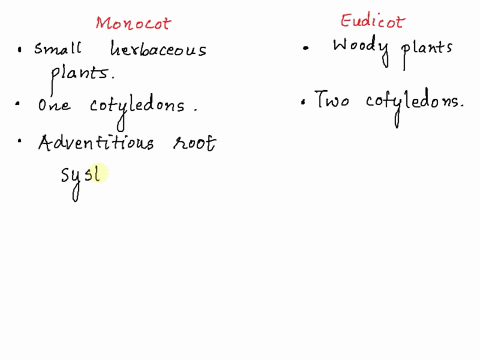 Monocot Eudicot
• Small herbaceous • Woody plants
plants.
• One cotyledons. • Two cotyledons.
• Adventitious root
syst